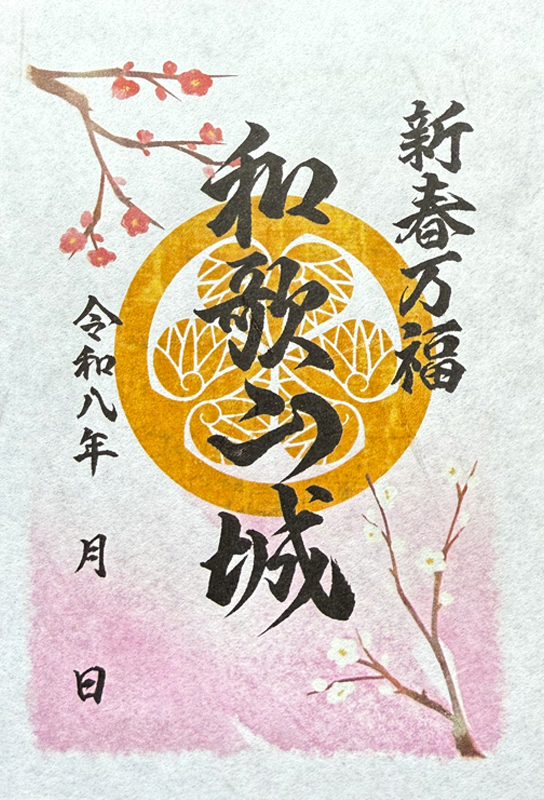 新春万福
和歌山城
令和八年 月 日